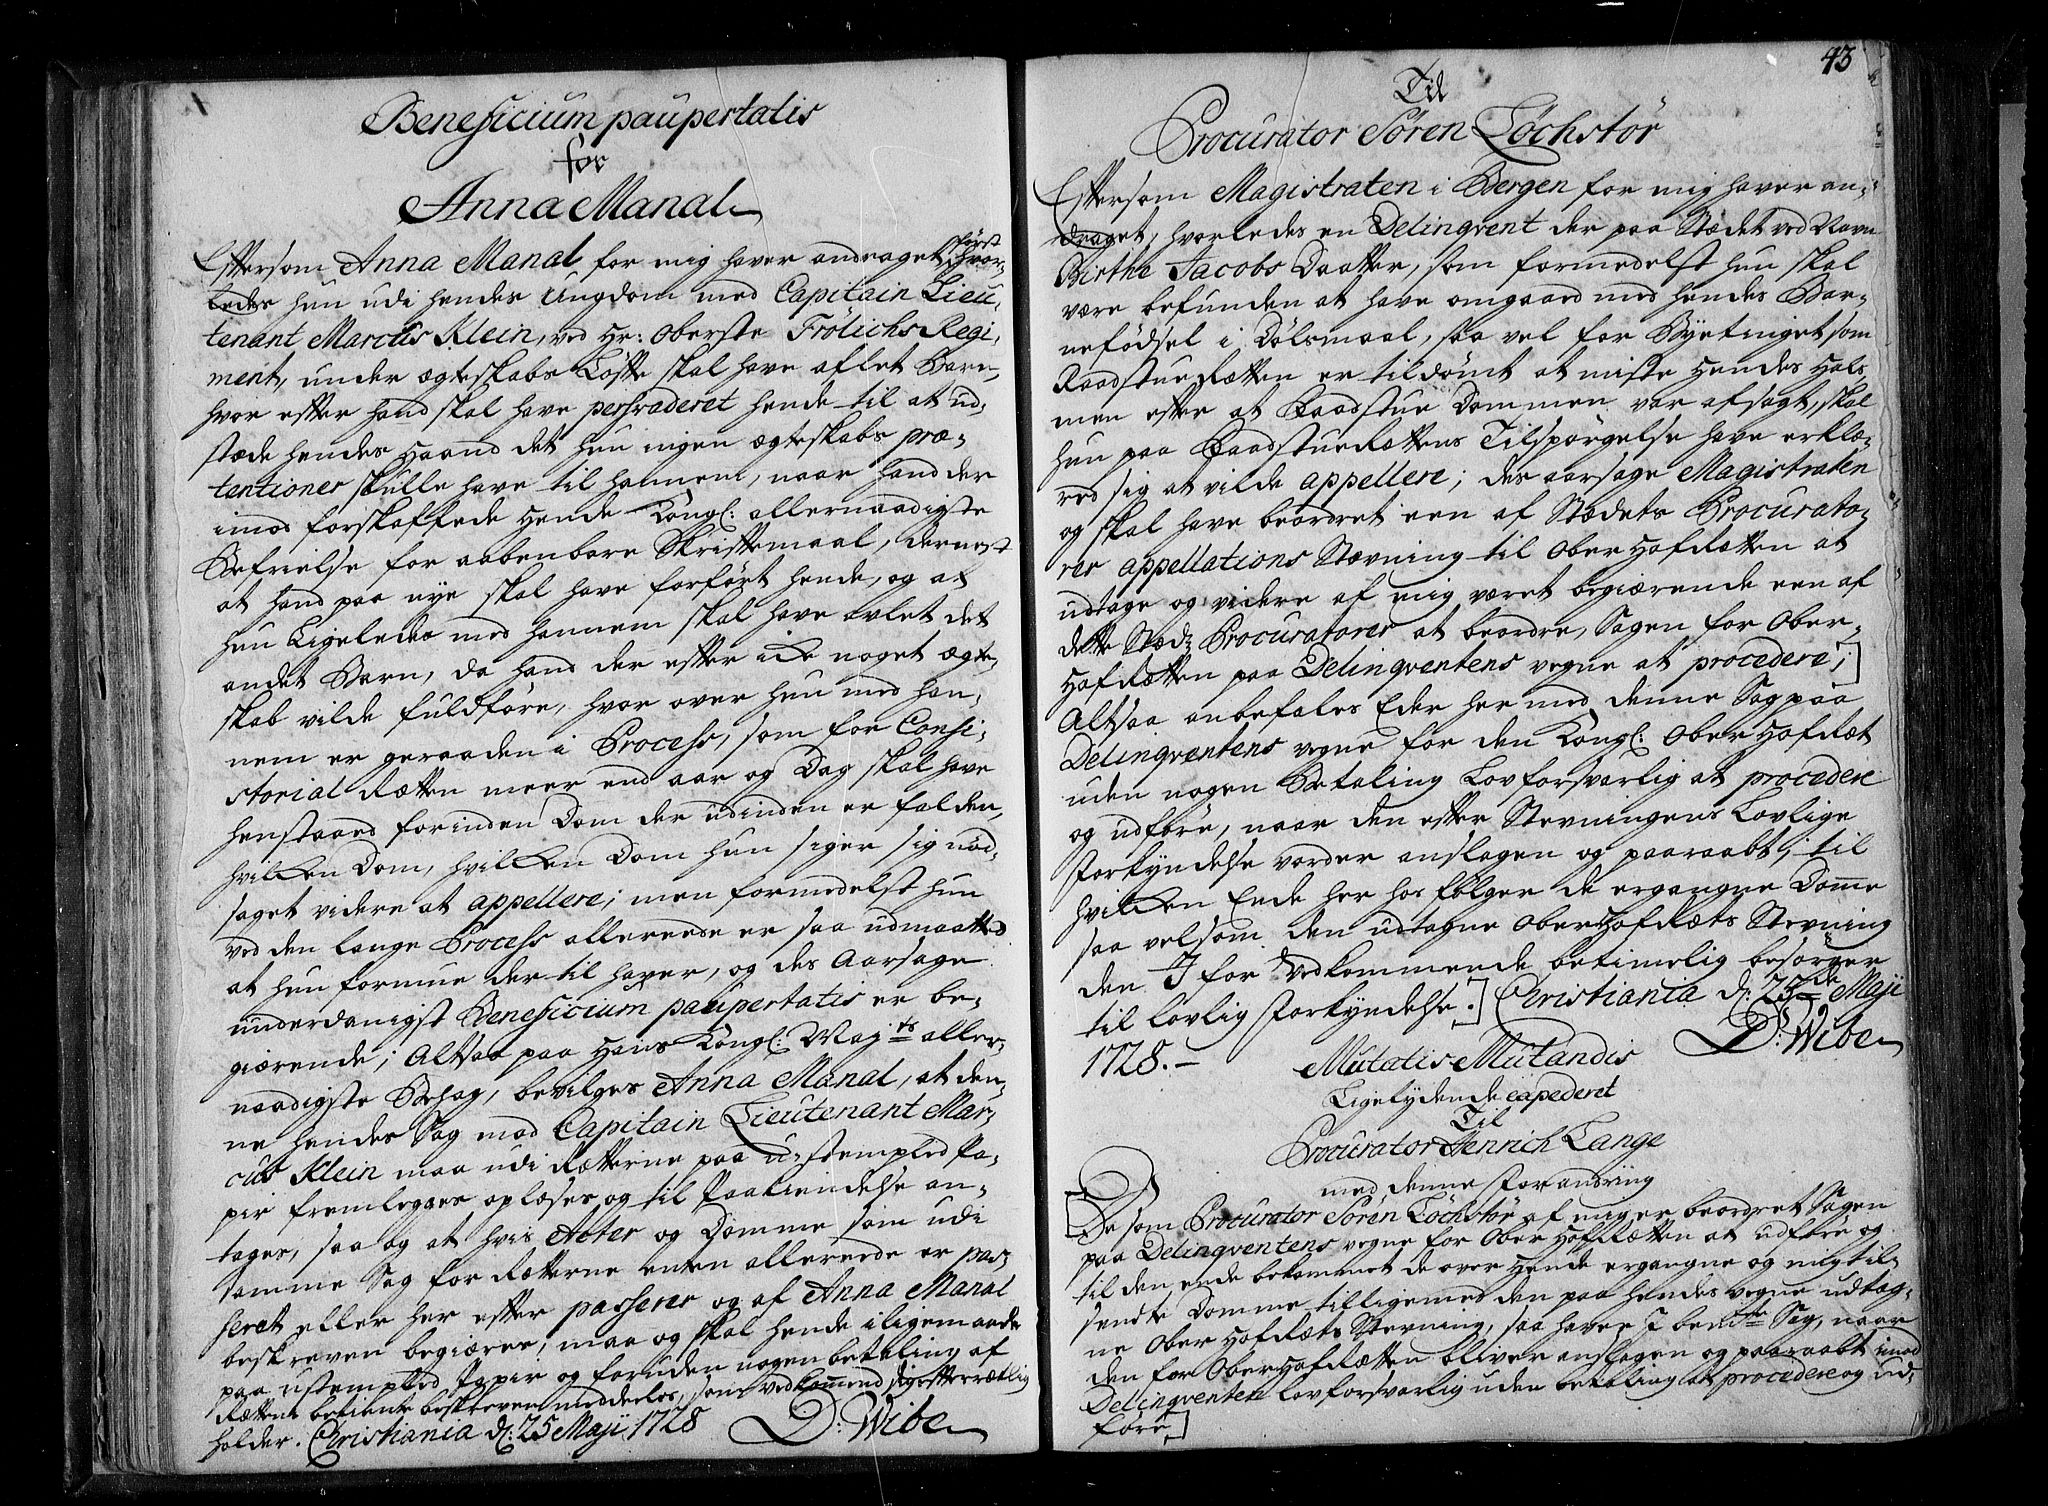 Beneficium paupertatis
for
Anna Manal
Eftersom Anna Manal for mig haver andraget, først hvor-
ledes hun udi hendes Ungdom med Capitain Lieu-
tenant Marcus Klein, ved Hr: Oberste Frölichs Regi-
ment, under ægteskabs Løfte skal have aflet Barn,
hvor efter hand skal have persvaderet hende til at ud-
stæde hendes Haand det hun ingen ægteskabs præ-
tentioner skulle have til hannem, naar hand der
imod forskaffede Hende Kongl: allernaadigste
Befrielse for aabenbare Skriftemaal, dernest
at hand paa nye skal have forført hende, og at
hun Ligeledes med hannem skal have avlet det
andet Barn, da hand der efter icke noget ægte-
skab vilde fuldføre, hvor over hun med han-
nem er geraaden i Process, som for Consi-
storial Rætten meer end aar og Dag skal have
henstaaed forinden Dom der udinden er falden,
hvilken Dom, hvilken Dom hun siger sig nød-
saget videre at appellere; men formedelst hun
ved den lange Process allereede er saa udmatted
at hun formue der til haver, og des Aarsage
underdanigst Beneficium paupertatis er be-
giærende; Altsaa paa Hans Kongl: Mayts aller-
naadigste Behag, bevilges Anna Manal, at den-
ne hendes Sag mod Capitain Lieutenant Mar-
cus Klein maa udi Rætterne paa u-stempled Pa-
pir fremlegges oplæses og til Paakiendelse an-
tages, saa og at hvis Acter og Domme som udi
samme Sag for Rætterne enten allereede er pas-
seret eller her efter passerer og af Anna Manal
beskreven begiæres, maa og skal hende iligemaade
paa ustempled Papir og foruden nogen betaling af
Rættens betiente beskreven meddeeles, som vedkommende sig efterrætlig
holder. Christiania d: 25 Maji 1728 D: Wibe
43
Til
Procurator Sören Löchstör
Eftersom Magistraten i Bergen for mig haver an-
draget, hvorledes en Delinqvent der paa Stædet ved Navn
Birthe Jacobs Daatter, som formedelst hun skal
være befunden at have omgaaed med hendes Bar-
nefødsel i Dølsmaal, saa vel for Byetinget som
RaadstueRætten er tildømt at miste Hendes Hals
men efter at Raadstue Dommen var afsagt, skal
hun paa RaadstueRættens Tilspørgelse have erklæ-
red sig at vilde appellere; des aarsage Magistraten
og skal have beordret een af Stædets Procurato-
rer appellations Stævning til OberHofRætten at
udtage og videre af mig været begiærende een af
dette Stædz Procuratorer at beordre, Sagen for Ober-
HofRætten paa Delinqventens vegne at procedere;]
Altsaa anbefales Eder her med denne Sag paa
Delinqventens vegne for den Kongl: OberHofRæt
uden nogen Betaling Lovforsvarlig at procedere
og udføre, naar den efter Stevningens Lovlige
Forkyndelse vorder anslagen og paaraabt, til
hvilken Ende her hos følger de ergangne Domme
saa velsom den udtagne OberHofRæts Stevning
den I for Vedkommende betimelig besørger
til lovlig Forkyndelse.] Christiania d: 25de Maji
1728.- D: Wibe
Mutatis Mutandis
Ligelydende expederet
Til
Procurator Henrich Lange
med denne Forandring
[De som Procurator Sören Löchstör af mig er beordret Sagen
paa Delinqventens vegne for OberHofRætten at udføre og
til den ende bekommet de over Hende ergangne og mig til-
sendte Domme tilligemed den paa hendes vegne udtag-
ne OberHofRæts Stevning, saa haver I bemte Sag, naar
den for OberHofRætten bliver anslagen og paaraabt imod
Delinqventen lovforsvarlig uden betaling at procedere og ud-
føre]